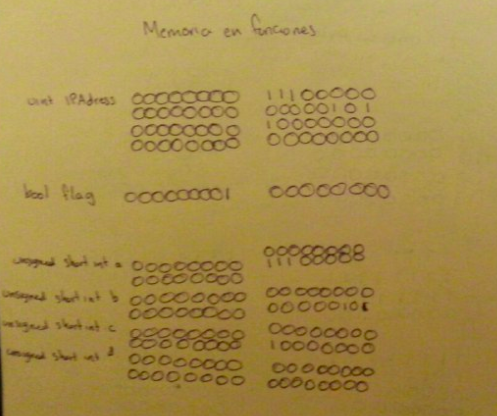 Memoria en funciones
uint IPAdress 00000000 11100000
00000000 00000101
00000000 10000000
00000000 00000000
bool flag 00000001 00000000
unsigned short int a 00000000 00000000
00000000 11100000
unsigned short int b 00000000 00000000
00000000 00000101
unsigned short int c 00000000 00000000
00000000 10000000
unsigned short int d 00000000 00000000
00000000 00000000